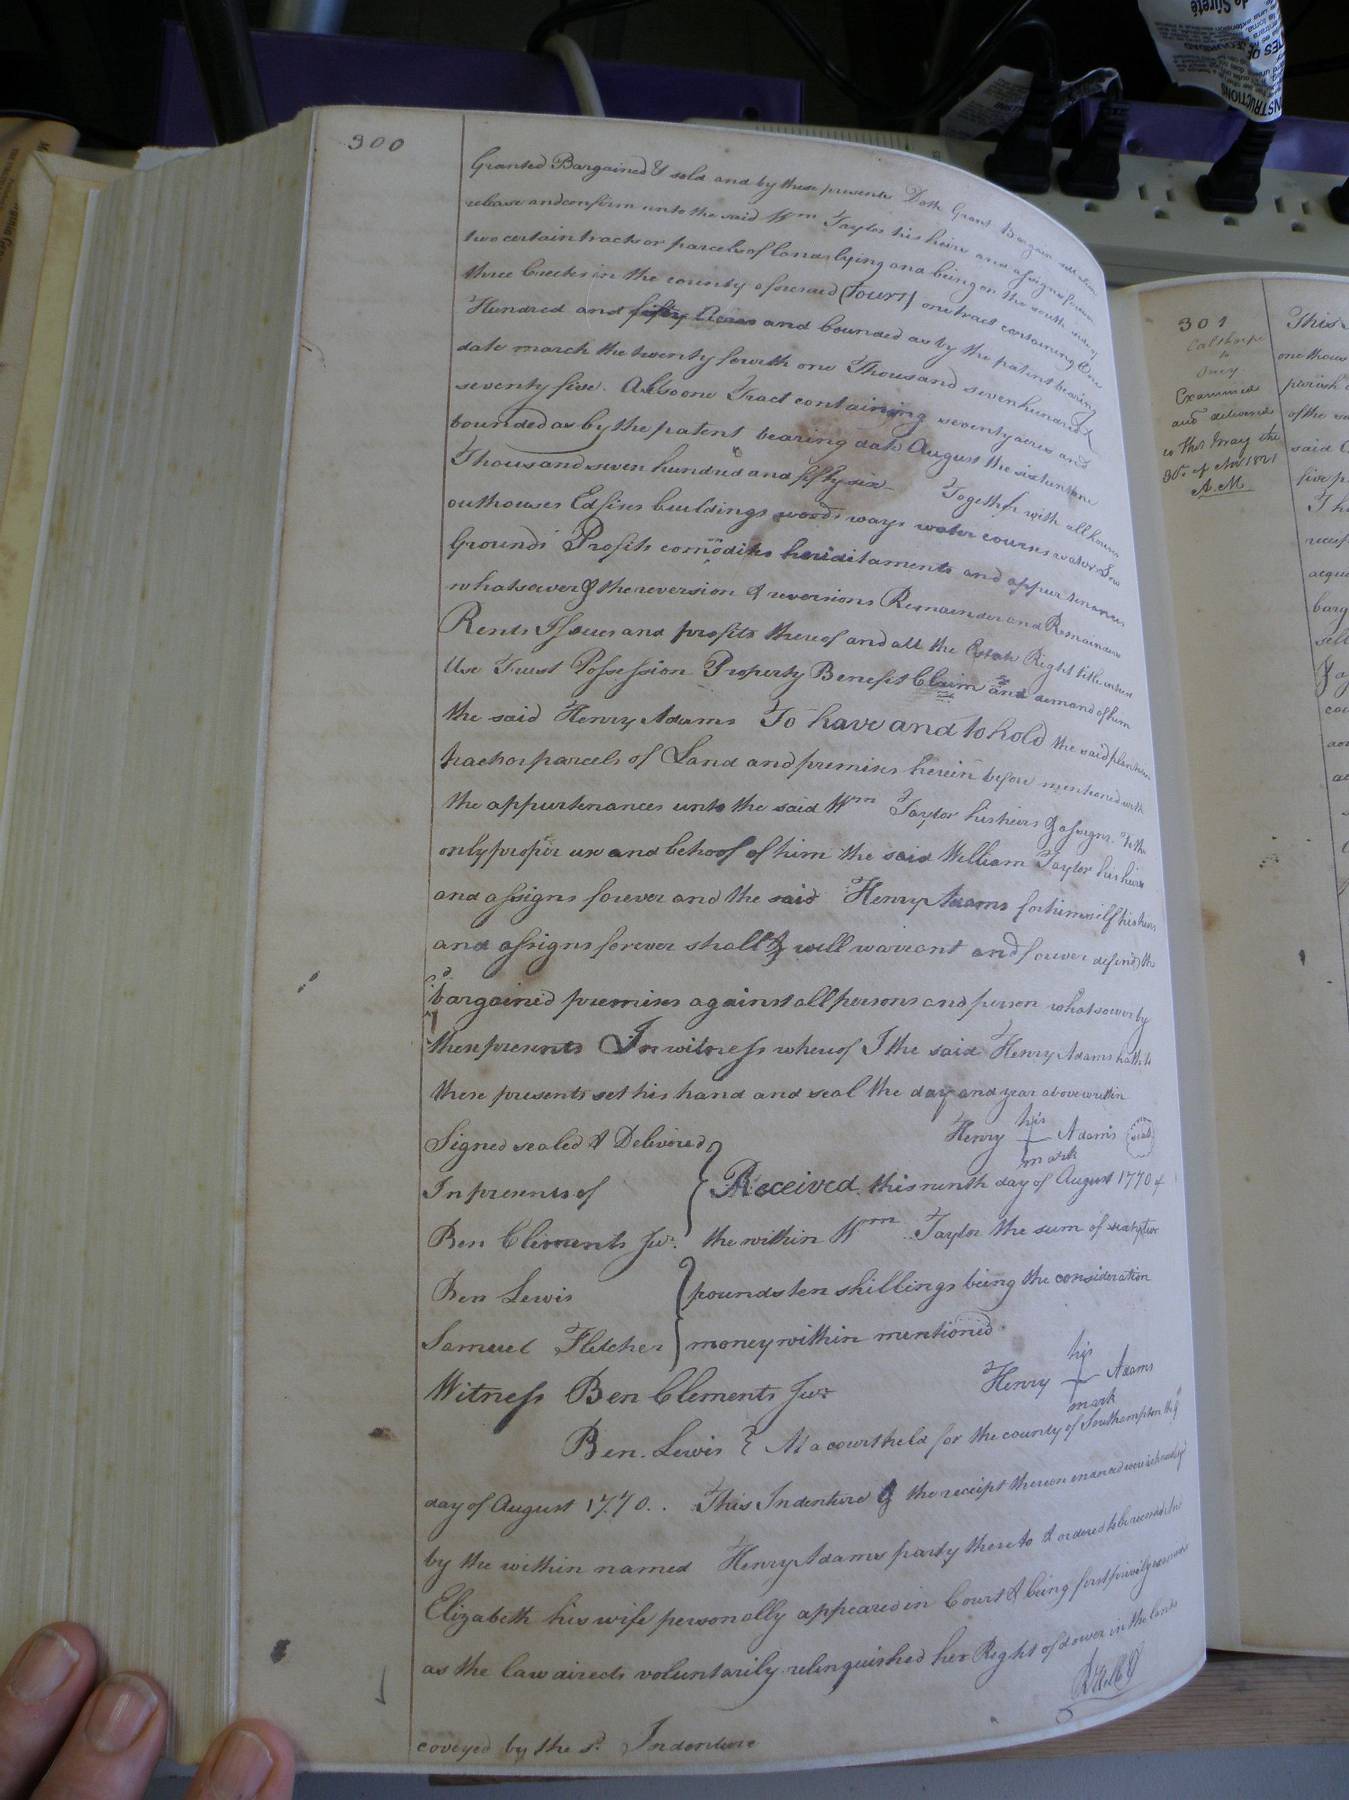 300
Granted Bargained & sold and by these presents Doth Grant Bargain sell alien
release and confirm unto the said Wm Taylor his heirs and assigns forever
two certain tracts or parcels of land lying and being on the south side of
three creeks in the county aforesaid (Towit) one tract containing One
Hundred and fifty Acres and bounded as by the patent bearing
date march the twenty fourth one Thousand seven hundred &
seventy five. Also one Tract containing seventy acres and
bounded as by the patent bearing date August the sixteenth one
Thousand seven hundred and fifty six Together with all houses
outhouses Edifices buildings woods ways water courses
Grounds Profits comōdites hereditaments and appurtenances
whatsoever & the reversion & reversions Remainder and Remainders
Rents Issues and profits thereof and all the Estate Right title interest
Use Trust Possession Property Benefit Claim and demand of him
the said Henry Adams To have and to hold the said plantation
tract or parcels of Land and premises herein before mentioned with
the appurtenances unto the said Wm Taylor his heirs & assigns. To the
only proper use and behoof of him the said William Taylor his heirs
and assigns forever and the said Henry Adams for himself his heirs
and assigns forever shall & will warrant and forever defend the
sd bargained premises against all persons and person whatsoever by
these presents In witness whereof I the said Henry Adams hath to
these presents set his hand and seal the day and year above written
Signed sealed & Delivered
Henry his + mark Adams seal
In presents of
Received this ninth day of August 1770 of
Ben Clements Jur. the within Wm Taylor the sum of sixty two
Ben Lewis pounds ten shillings being the consideration
Samuel Fletcher money within mentioned.
Witness Ben Clements Jur
Henry his + mark Adams
Ben. Lewis At a court held for the county of Southampton the 9
day of August 1770.. This Indenture & the receipt thereon were
by the within named Henry Adams party thereto & ordered to be recorded
Elizabeth his wife personally appeared in Court & being first privily
as the law directs voluntarily relinquished her Right of dower in the lands
coveyed by the sd. Indenture
301
Calthorpe
to
Examined
and delivered
to Thos Bray the
30th of Novr 1821
A.M.
This
one thous
parish
of the
said
five p
Th
recei
acqu
barg
sell